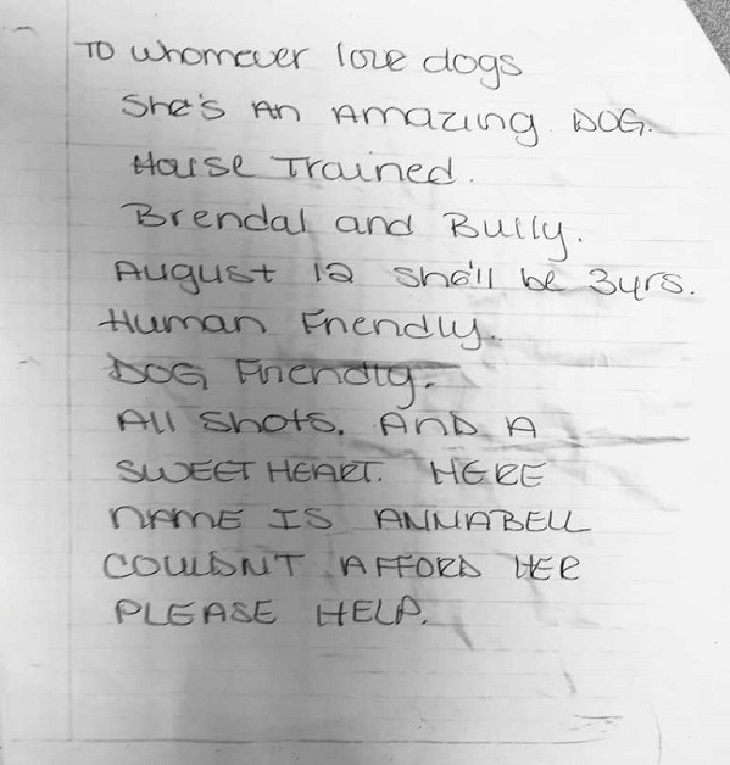 TO whomever love dogs
She's An Amazing DOG.
House Trained.
Brendal and Bully.
August 12 she'll be 3yrs.
Human Friendly.
DOG Friendly.
All shots. AND A
SWEET HEART. HERE
NAME IS ANNABELL
COULDNT AFFORD HER
PLEASE HELP.